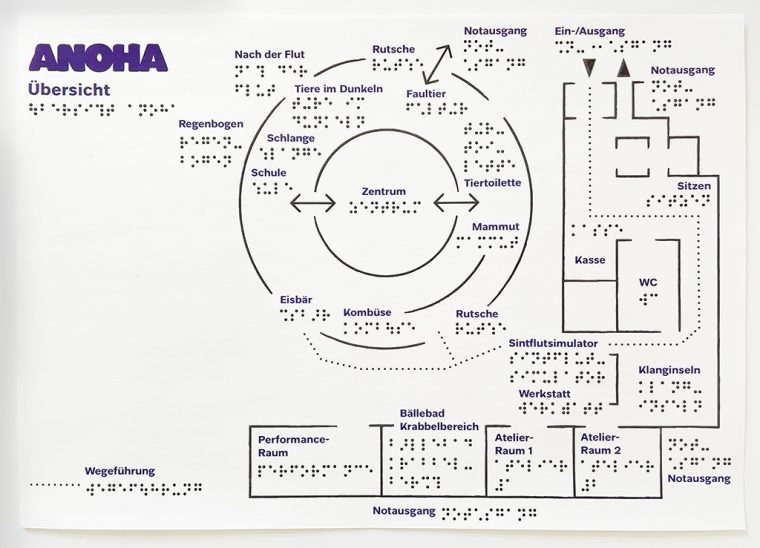 ANOHA
Übersicht
Nach der Flut
Rutsche
Notausgang
Ein-/Ausgang
Notausgang
Tiere im Dunkeln
Faultier
Regenbogen
Schlange
Schule
Zentrum
Tiertoilette
Sitzen
Mammut
Kasse
WC
Eisbär
Kombüse
Rutsche
Sintflutsimulator
Klanginseln
Werkstatt
Performance-
Raum
Bällebad
Krabbelbereich
Atelier-
Raum 1
Atelier-
Raum 2
Notausgang
Wegeführung
Notausgang